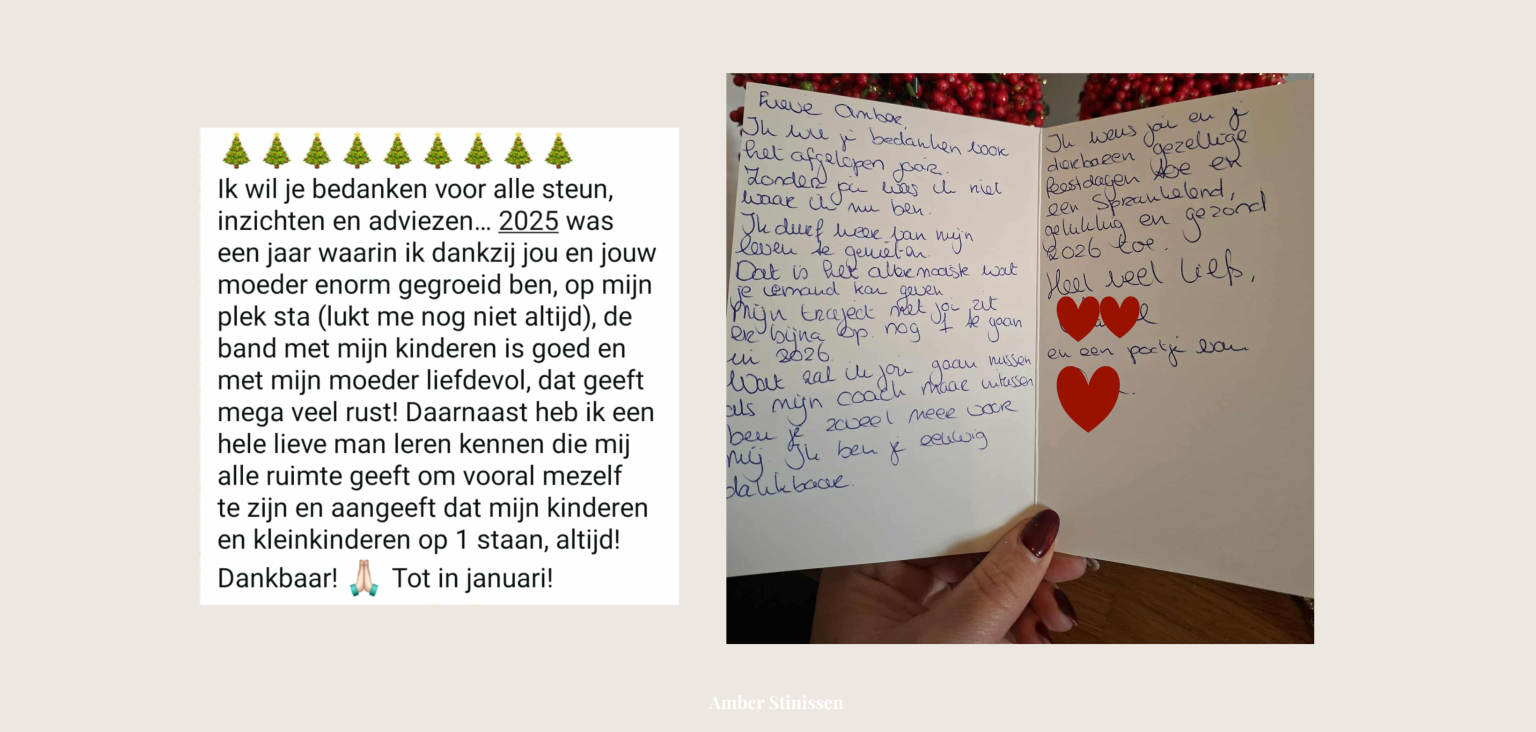 🎄🎄🎄🎄🎄🎄🎄🎄🎄
Ik wil je bedanken voor alle steun,
inzichten en adviezen... 2025 was
een jaar waarin ik dankzij jou en jouw
moeder enorm gegroeid ben, op mijn
plek sta (lukt me nog niet altijd), de
band met mijn kinderen is goed en
met mijn moeder liefdevol, dat geeft
mega veel rust! Daarnaast heb ik een
hele lieve man leren kennen die mij
alle ruimte geeft om vooral mezelf
te zijn en aangeeft dat mijn kinderen
en kleinkinderen op 1 staan, altijd!
Dankbaar! 🙏🏻 Tot in januari!
Lieve Amber,
Ik wil je bedanken voor
het afgelopen jaar.
Zonder jou was ik niet
waar ik nu ben.
Ik durf weer van mijn
leven te genieten.
Dat is het allermooiste wat
je iemand kan geven
Mijn traject met jou zit
er bijna op. nog 1 te gaan
in 2026.
Wat zal ik jou gaan missen
als mijn coach maar intussen
ben je zoveel meer voor
mij. Ik ben je eeuwig
dankbaar.
Ik wens jou en je
dierbaren gezellige
feestdagen toe en
een Sprankelend,
gelukkig en gezond
2026 toe.
Heel veel liefs,
en een pootje van
Amber Stinissen